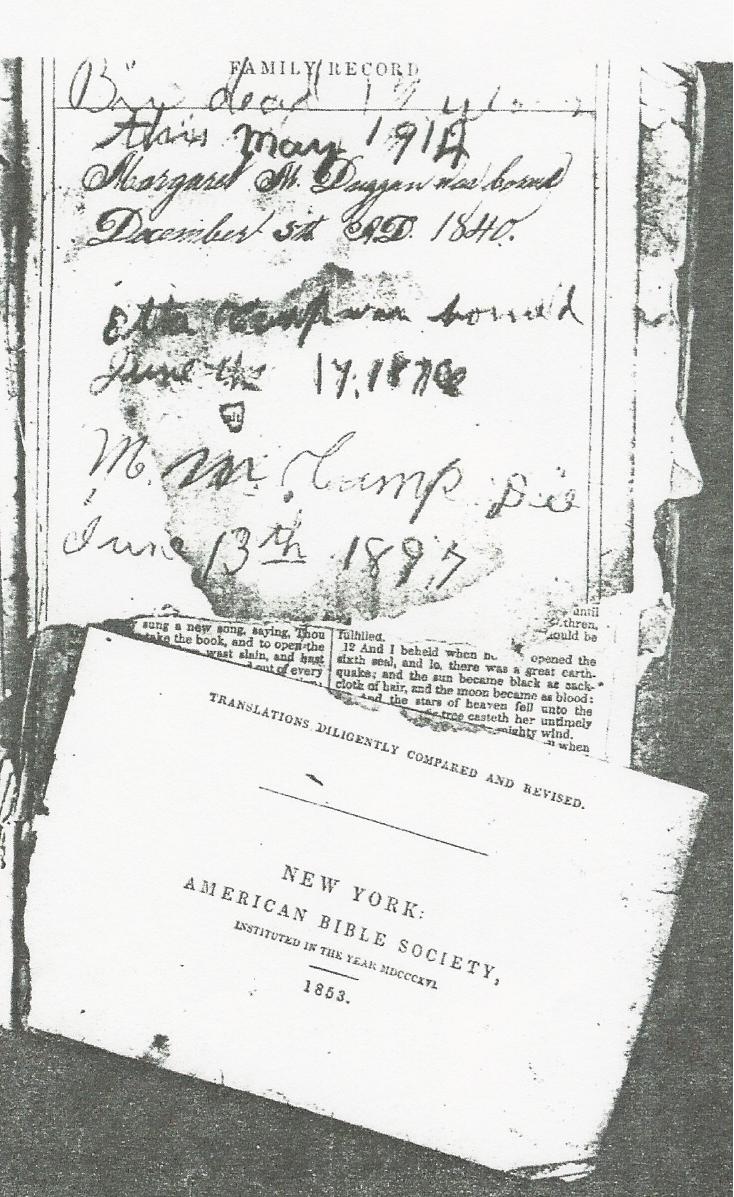 FAMILY RECORD
Bin dead 17 years
this may 1914
Margaret M. Duggan was bornd
December 5th A.D. 1840.
Etta Camp was bornned
June the 17, 1876
M. M. Camp Die
June 13th 1897
until
thren,
ould be
sung a new song, saying, Thou
take the book, and to open the
wast slain, and hast
out of every
fulfilled.
12 And I beheld when opened the
sixth seal, and lo, there was a great earth-
quake; and the sun became black as sack-
cloth of hair, and the moon became as blood:
And the stars of heaven fell unto the
tree casteth her untimely
mighty wind.
when
TRANSLATIONS DILIGENTLY COMPARED AND REVISED.
NEW YORK:
AMERICAN BIBLE SOCIETY,
INSTITUTED IN THE YEAR MDCCCXVI.
1853.